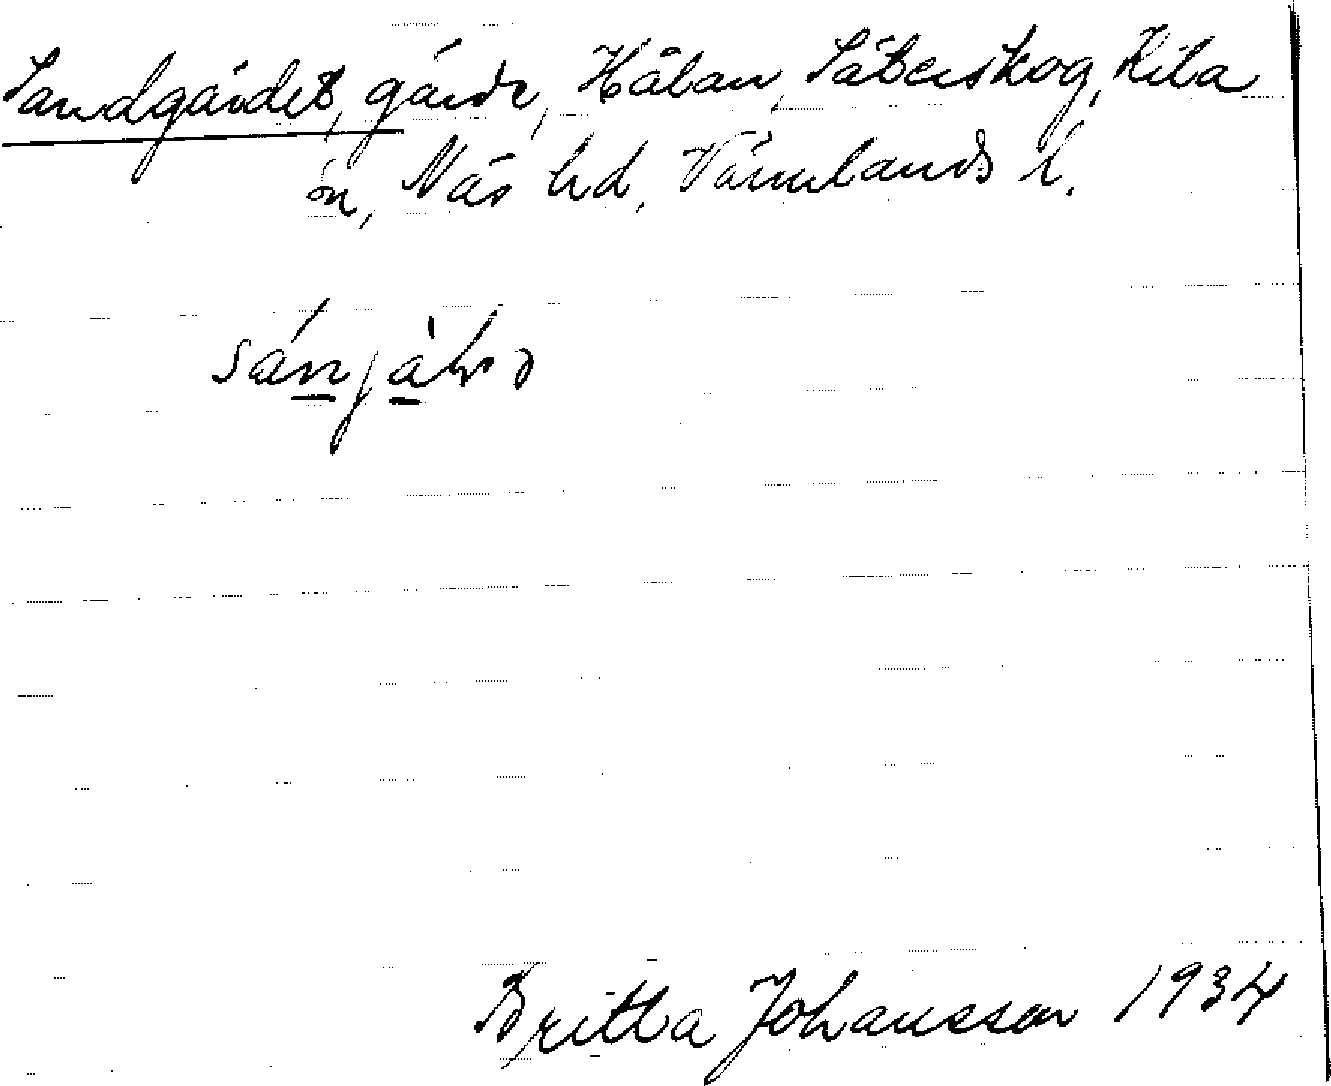 Sandgärdet, gärde, Hålan, Säterskog, Kila
sn, Näs hd, Värmlands l.
Britta Johansson 1934